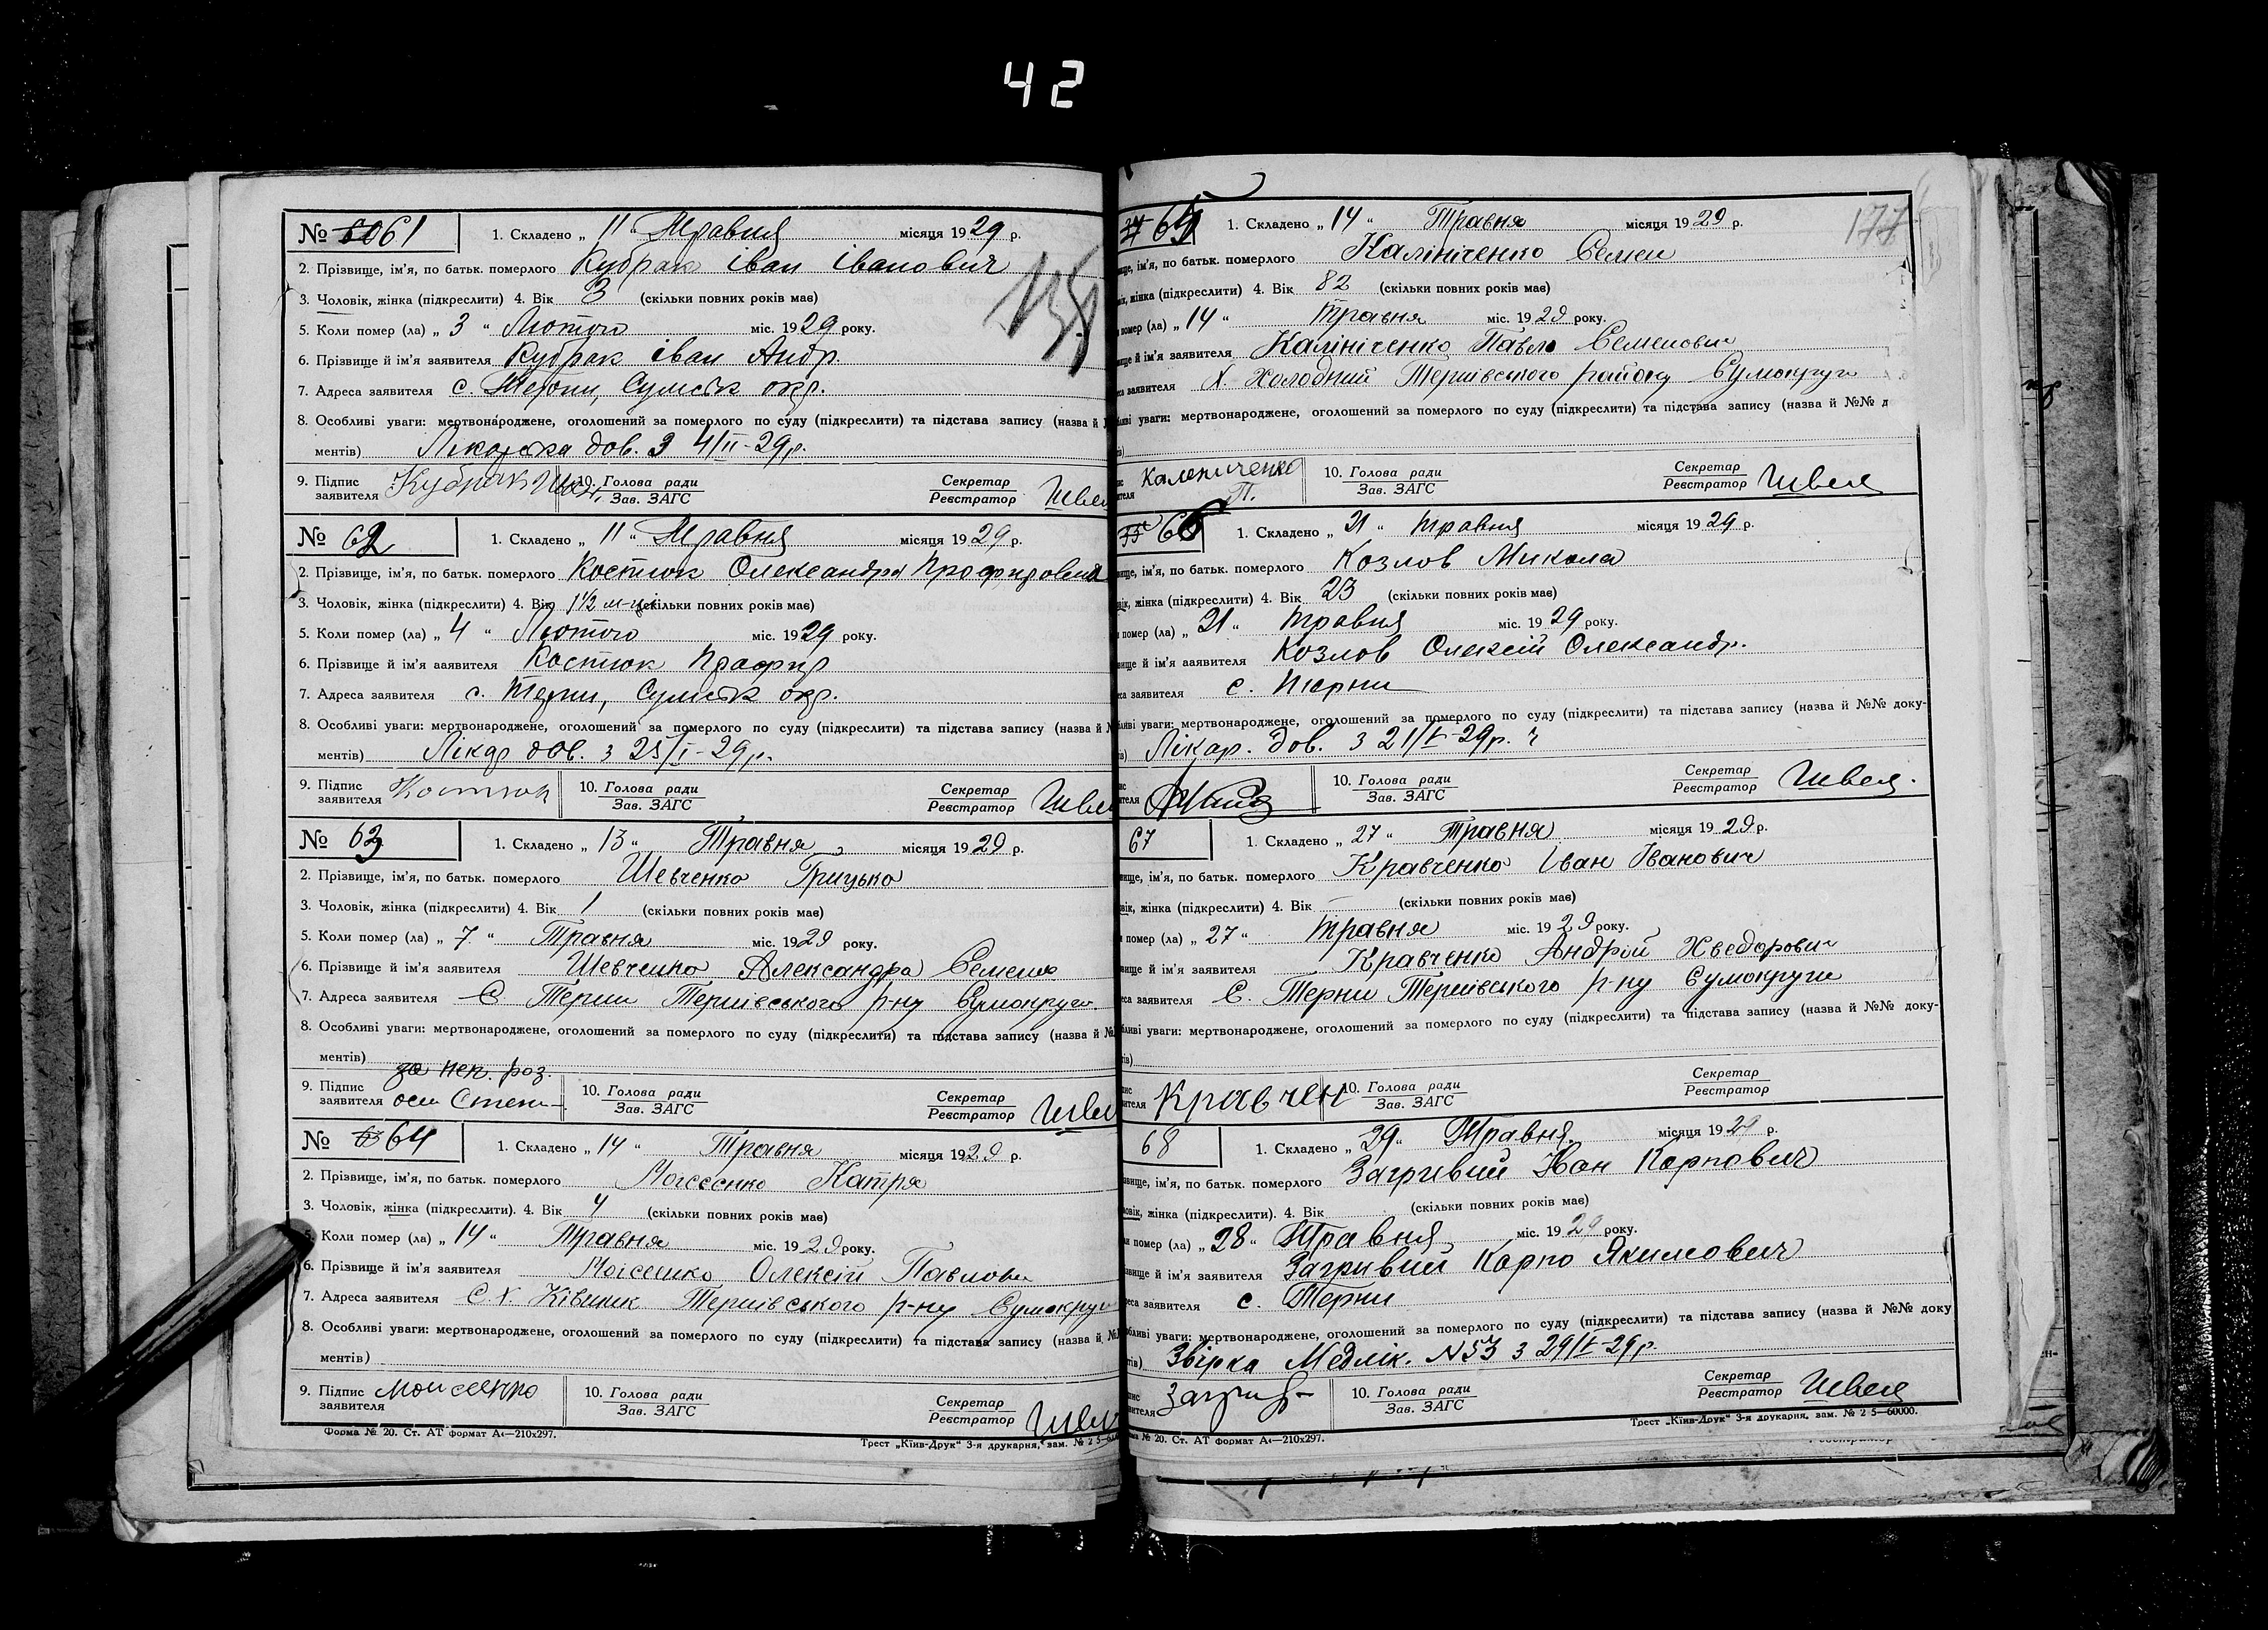 42
№ 61 1. Складено „ 11 Травня місяця 1929 р.
2. Прізвище, ім'я, по батьк. померлого Кубрак іван іванович
3. Чоловік, жінка (підкреслити) 4. Вік 3 (скільки повних років має)
5. Коли помер (ла) „ 3 “ Лютого міс. 1929 року.
6. Прізвище й ім'я заявителя Кубрак іван Андр.
7. Адреса заявителя с. Терни, Сумськ окр.
8. Особливі уваги: мертвонароджене, оголошений за померлого по суду (підкреслити) та підстава запису (назва й
ментів) Лікарска дов. з 4/II-29р.
9. Підпис заявителя Кубрак 10. Голова ради Зав. ЗАГС Секретар Реєстратор
№ 62 1. Складено „ 11 “ Травня місяця 1929 р.
2. Прізвище, ім'я, по батьк. померлого Костюк Олександра
3. Чоловік, жінка (підкреслити) 4. Вік 1½ м-ця (скільки повних років має)
5. Коли помер (ла) „ 4 “ Лютого міс. 1929 року.
6. Прізвище й ім'я заявителя Костюк
7. Адреса заявителя с. Терни, Сумськ окр.
8. Особливі уваги: мертвонароджене, оголошений за померлого по суду (підкреслити) та підстава запису (назва й №
ментів) Лікар дов. з 25/I-29р.
9. Підпис заявителя Костюк 10. Голова ради Зав. ЗАГС Секретар Реєстратор
№ 63 1. Складено „ 13 “ Травня місяця 1929 р.
2. Прізвище, ім'я, по батьк. померлого Шевченко Грицько
3. Чоловік, жінка (підкреслити) 4. Вік 1 (скільки повних років має)
5. Коли помер (ла) „ 7 “ Травня міс. 1929 року.
6. Прізвище й ім'я заявителя Шевченко Александра
7. Адреса заявителя С Терни Тернівського р-ну Сумокруги
8. Особливі уваги: мертвонароджене, оголошений за померлого по суду (підкреслити) та підстава запису (назва й №
ментів)
за неп. роз.
9. Підпис заявителя 10. Голова ради Зав. ЗАГС Секретар Реєстратор
№ 64 1. Складено „ 14 “ Травня місяця 1929 р.
2. Прізвище, ім'я, по батьк. померлого Моісеєнко Катря
3. Чоловік, жінка (підкреслити). 4. Вік 4 (скільки повних років має)
Коли помер (ла) „ 14 “ Травня міс. 1929 року.
6. Прізвище й ім'я заявителя Моісеєнко Олексій
7. Адреса заявителя Тернівського р-ну Сумокруги
8. Особливі уваги: мертвонароджене, оголошений за померлого по суду (підкреслити) та підстава запису (назва й №
ментів)
9. Підпис заявителя 10. Голова ради Зав. ЗАГС Секретар Реєстратор
Форма № 20. Ст. АТ формат А4—210х297.
Трест „Київ-Друк“ 3-я друкарня, зам. № 2
177
65 1. Складено „ 14 “ Травня місяця 1929 р.
ім'я, по батьк. померлого Калініченко Семен
жінка (підкреслити) 4. Вік 82 (скільки повних років має)
помер (ла) „ 14 “ Травня міс. 1929 року.
й ім'я заявителя Калініченко Павло Семенович
заявителя Х. Холодний Тернівського району Сумокруги
уваги: мертвонароджене, оголошений за померлого по суду (підкреслити) та підстава запису (назва й №№ д
Калениченко П. 10. Голова ради Зав. ЗАГС Секретар Реєстратор Швец
66 1. Складено „ 21 “ Травня місяця 1929 р.
ім'я, по батьк. померлого Козлов Микола
жінка (підкреслити) 4. Вік 23 (скільки повних років має)
помер (ла) „ 21 “ Травня міс. 1929 року.
й ім'я заявителя Козлов Олексій Олександр.
заявителя с. Терни
уваги: мертвонароджене, оголошений за померлого по суду (підкреслити) та підстава запису (назва й №№ доку-
Лікар. дов. з 21/V-29р.
10. Голова ради Зав. ЗАГС Секретар Реєстратор Швец.
67 1. Складено „ 27 “ Травня місяця 1929 р.
ім'я, по батьк. померлого Кравченко Іван Іванович
жінка (підкреслити) 4. Вік — (скільки повних років має)
помер (ла) „ 27 “ Травня міс. 1929 року.
й ім'я заявителя Кравченко Андрій Хведорович
заявителя С. Терни Тернівського р-ну Сумокруги
уваги: мертвонароджене, оголошений за померлого по суду (підкреслити) та підстава запису (назва й №№ доку-
Кравчен 10. Голова ради Зав. ЗАГС Секретар Реєстратор
68 1. Складено „ 29 “ Травня місяця 1929 р.
ім'я, по батьк. померлого Загривий Іван Карпович
жінка (підкреслити). 4. Вік (скільки повних років має)
помер (ла) „ 28 “ Травня міс. 1929 року.
й ім'я заявителя Загривий Карпо Якимович
заявителя с. Терни
уваги: мертвонароджене, оголошений за померлого по суду (підкреслити) та підстава запису (назва й №№ доку
Звірка Медлік. N53 з 29/V-29р.
10. Голова ради Зав. ЗАГС Секретар Реєстратор Швец
№ 20. Ст. АТ формат А4—210х297.
Трест „Київ-Друк“ 3-я друкарня, зам. № 2 5—60000.